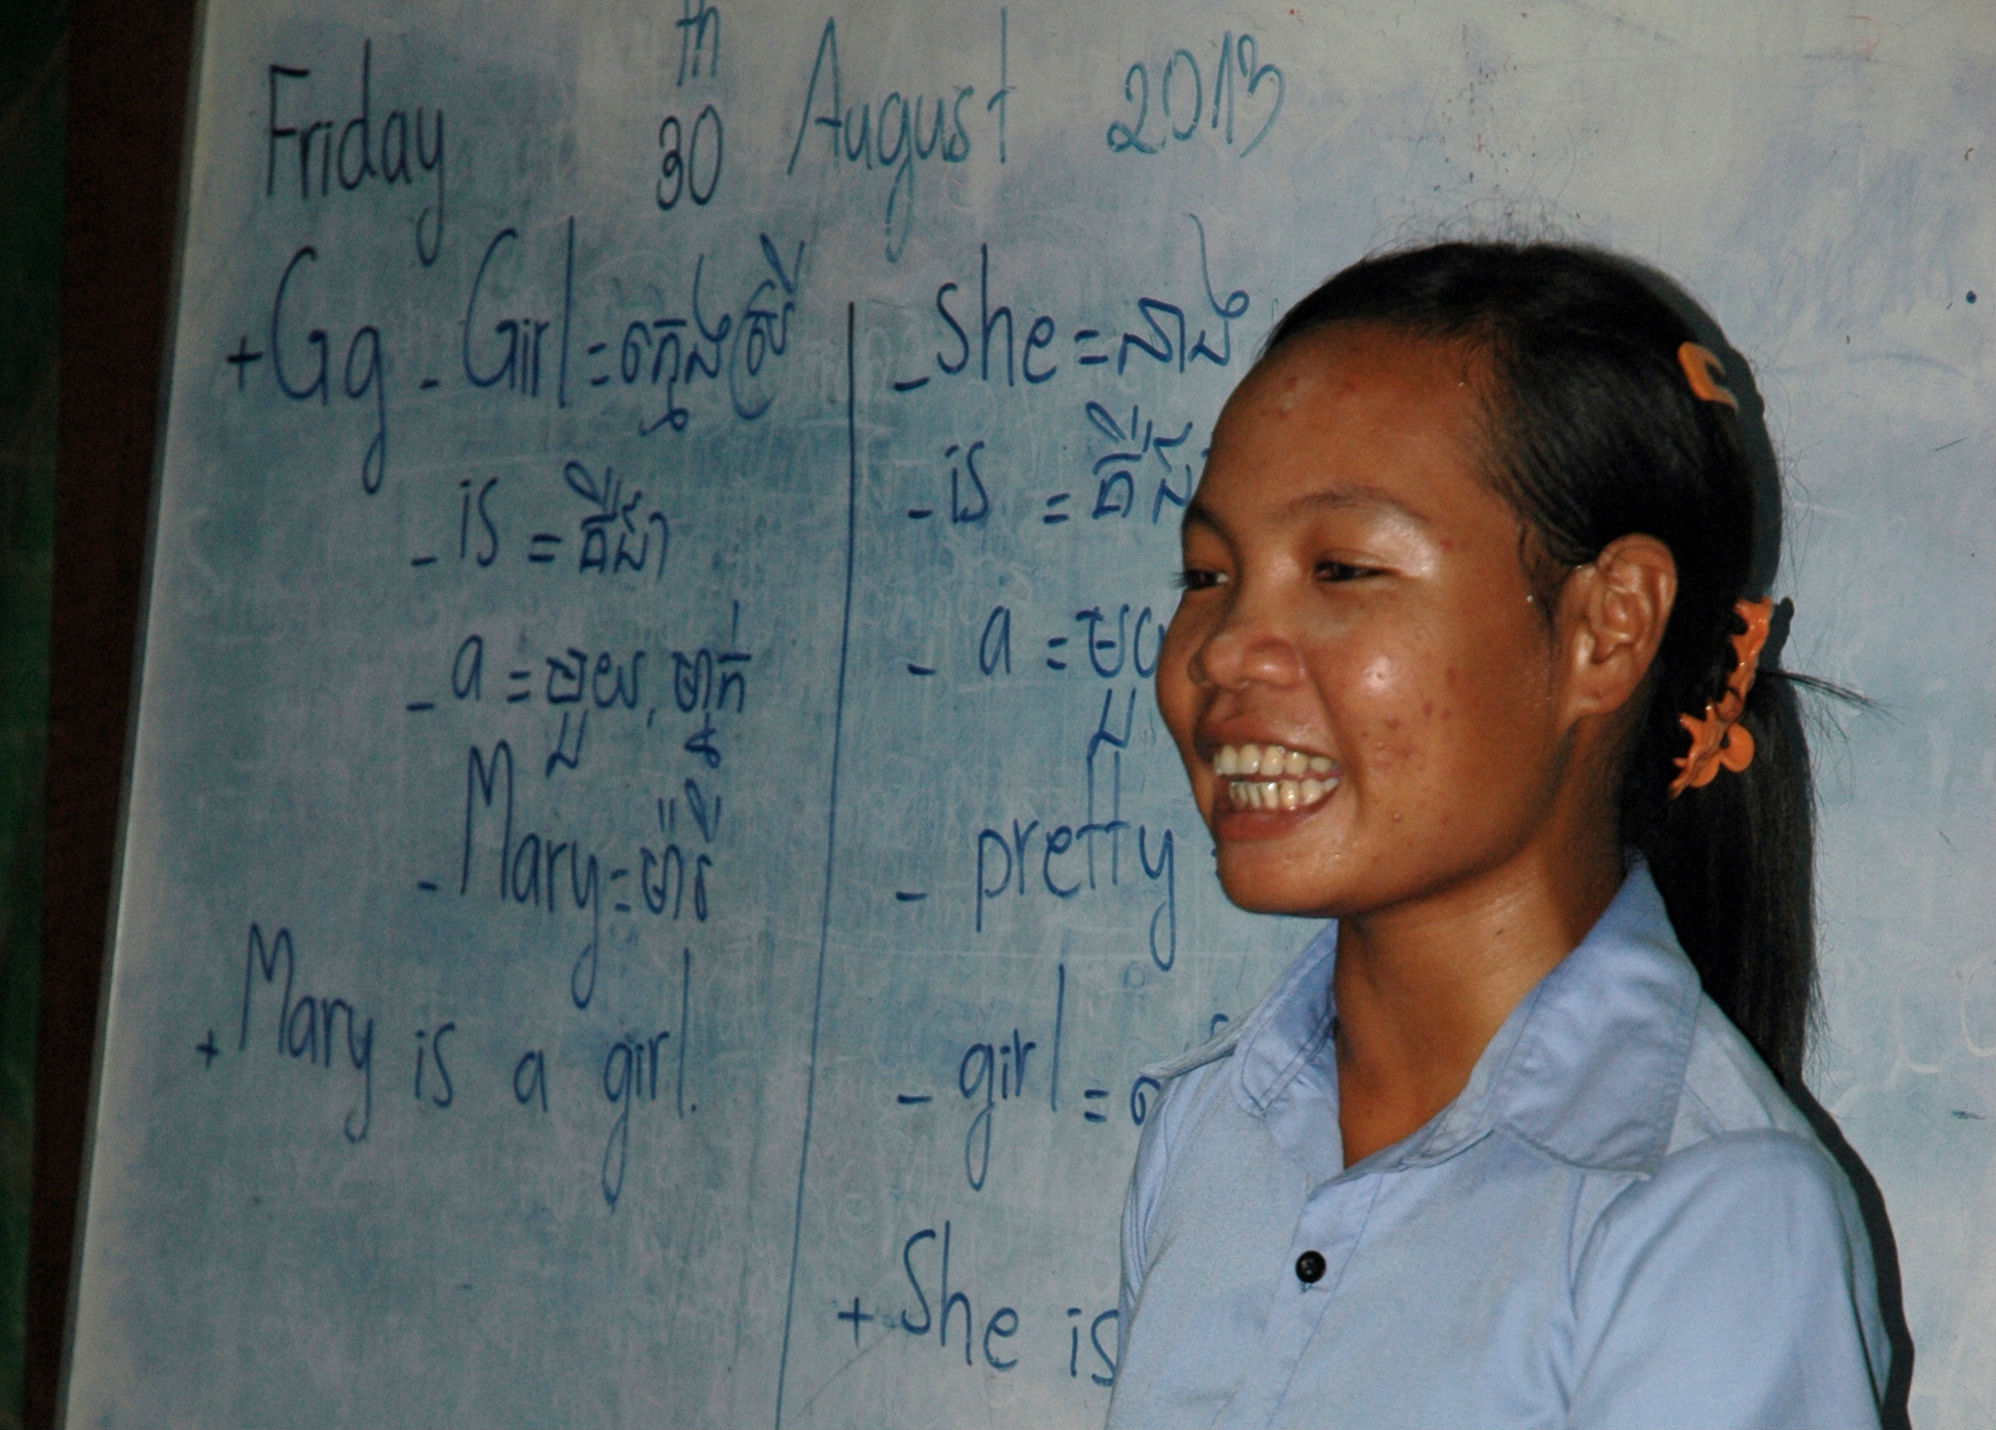 Friday 30th August 2013
+ Gg - Girl = ក្មេងស្រី
- is = គឺជា
- a = មួយ, ម្នាក់
- Mary = ម៉ារី
+ Mary is a girl.
- She = នាង
- is = គឺ
- a =
- pretty
- girl =
+ She is